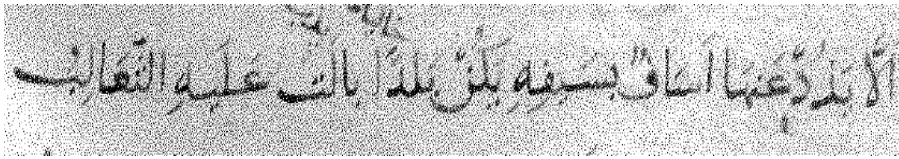 الا يذد عنها اساف بسيفه يكن بلدا بالت عليه الثعالب